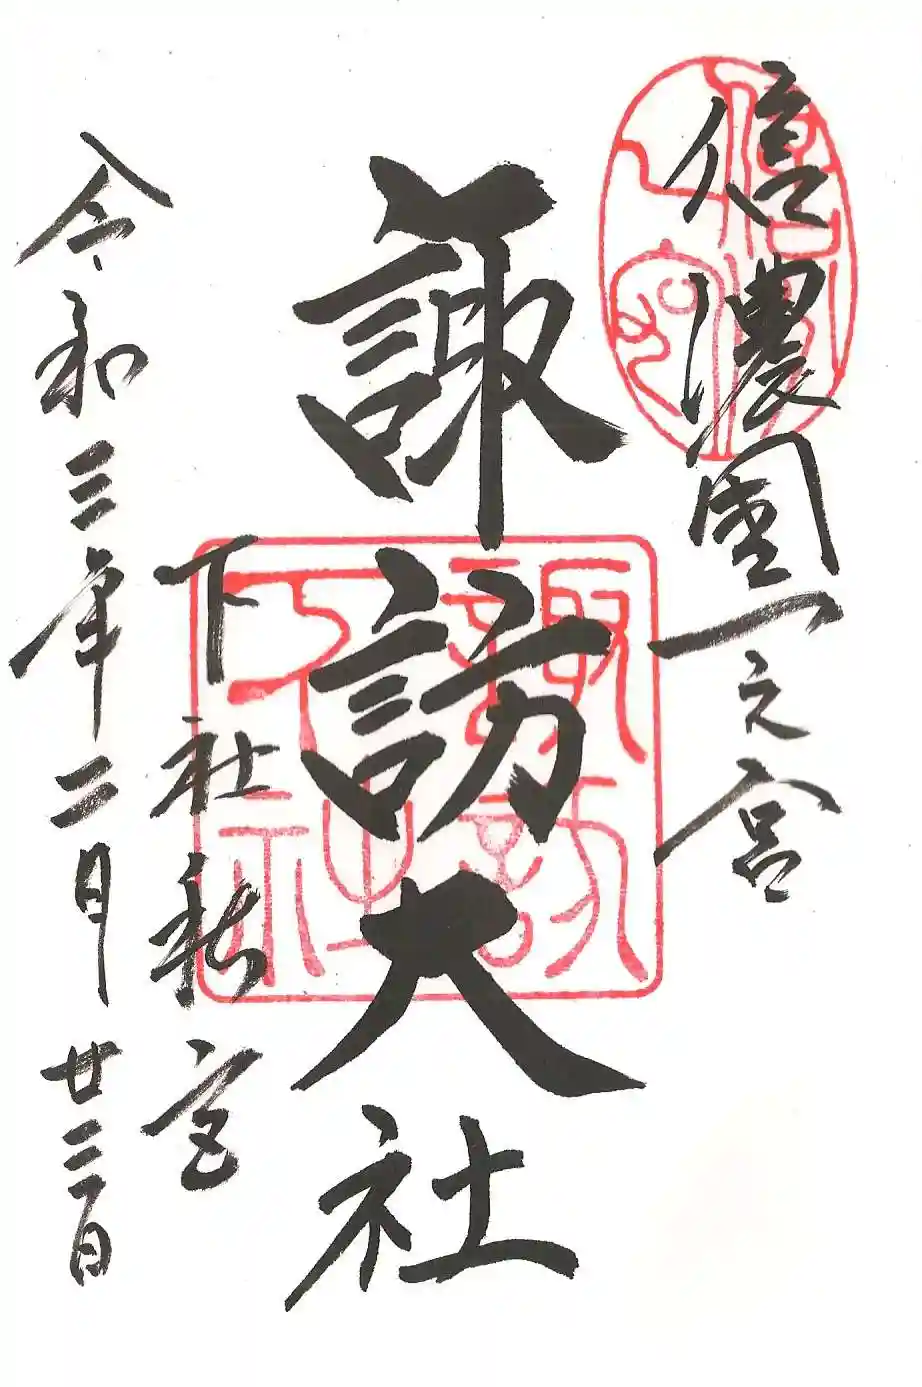 信濃國一之宮
諏訪大社
諏訪
下社
下社秋宮
令和三年二月廿三日